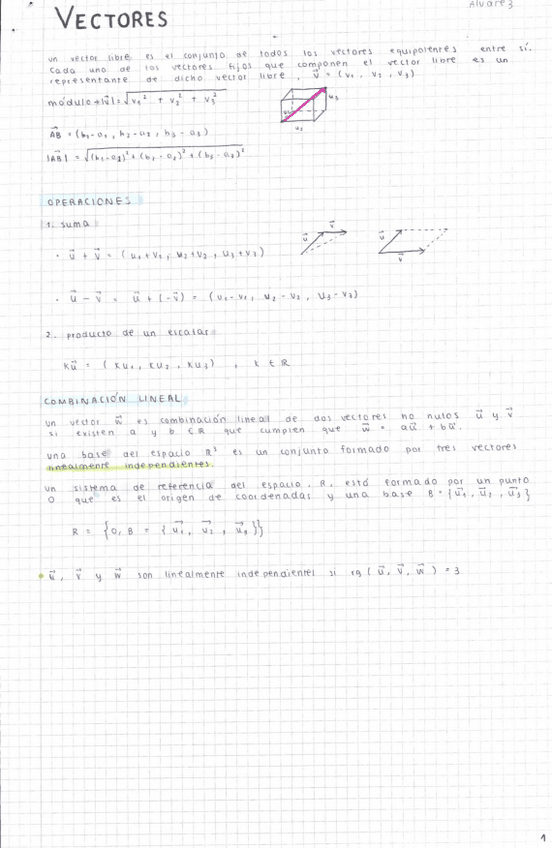 Alvarez
VECTORES
un vector libre es el conjunto de todos los vectores equipolentes entre sí.
Cada uno de los vectores fijos que componen el vector libre es un
representante de dicho vector libre, v⃗ = (v₁, v₂, v₃)
módulo → |v⃗| = √(v₁² + v₂² + v₃²)
u₃
u₂
AB⃗ = (b₁-a₁, b₂-a₂, b₃-a₃)
|AB⃗| = √((b₁-a₁)² + (b₂-a₂)² + (b₃-a₃)²)
OPERACIONES
1. suma
u⃗ v⃗
u⃗ v⃗
· u⃗ + v⃗ = (u₁+v₁, u₂+v₂, u₃+v₃)
· u⃗ - v⃗ = u⃗ + (-v⃗) = (u₁-v₁, u₂-v₂, u₃-v₃)
2. producto de un escalar
Ku⃗ = (Ku₁, Ku₂, Ku₃), K ∈ R
COMBINACIÓN LINEAL
un vector w⃗ es combinación lineal de dos vectores no nulos u⃗ y v⃗
si existen a y b ∈ R que cumplen que w⃗ = au⃗ + bv⃗.
una base del espacio R³ es un conjunto formado por tres vectores
linealmente independientes.
un sistema de referencia del espacio, R, está formado por un punto
O que es el origen de coordenadas y una base B = {u₁⃗, u₂⃗, u₃⃗}
R = {O, B = {u₁⃗, u₂⃗, u₃⃗}}
• u⃗, v⃗ y w⃗ son linealmente independientes si rg(u⃗, v⃗, w⃗) = 3
1